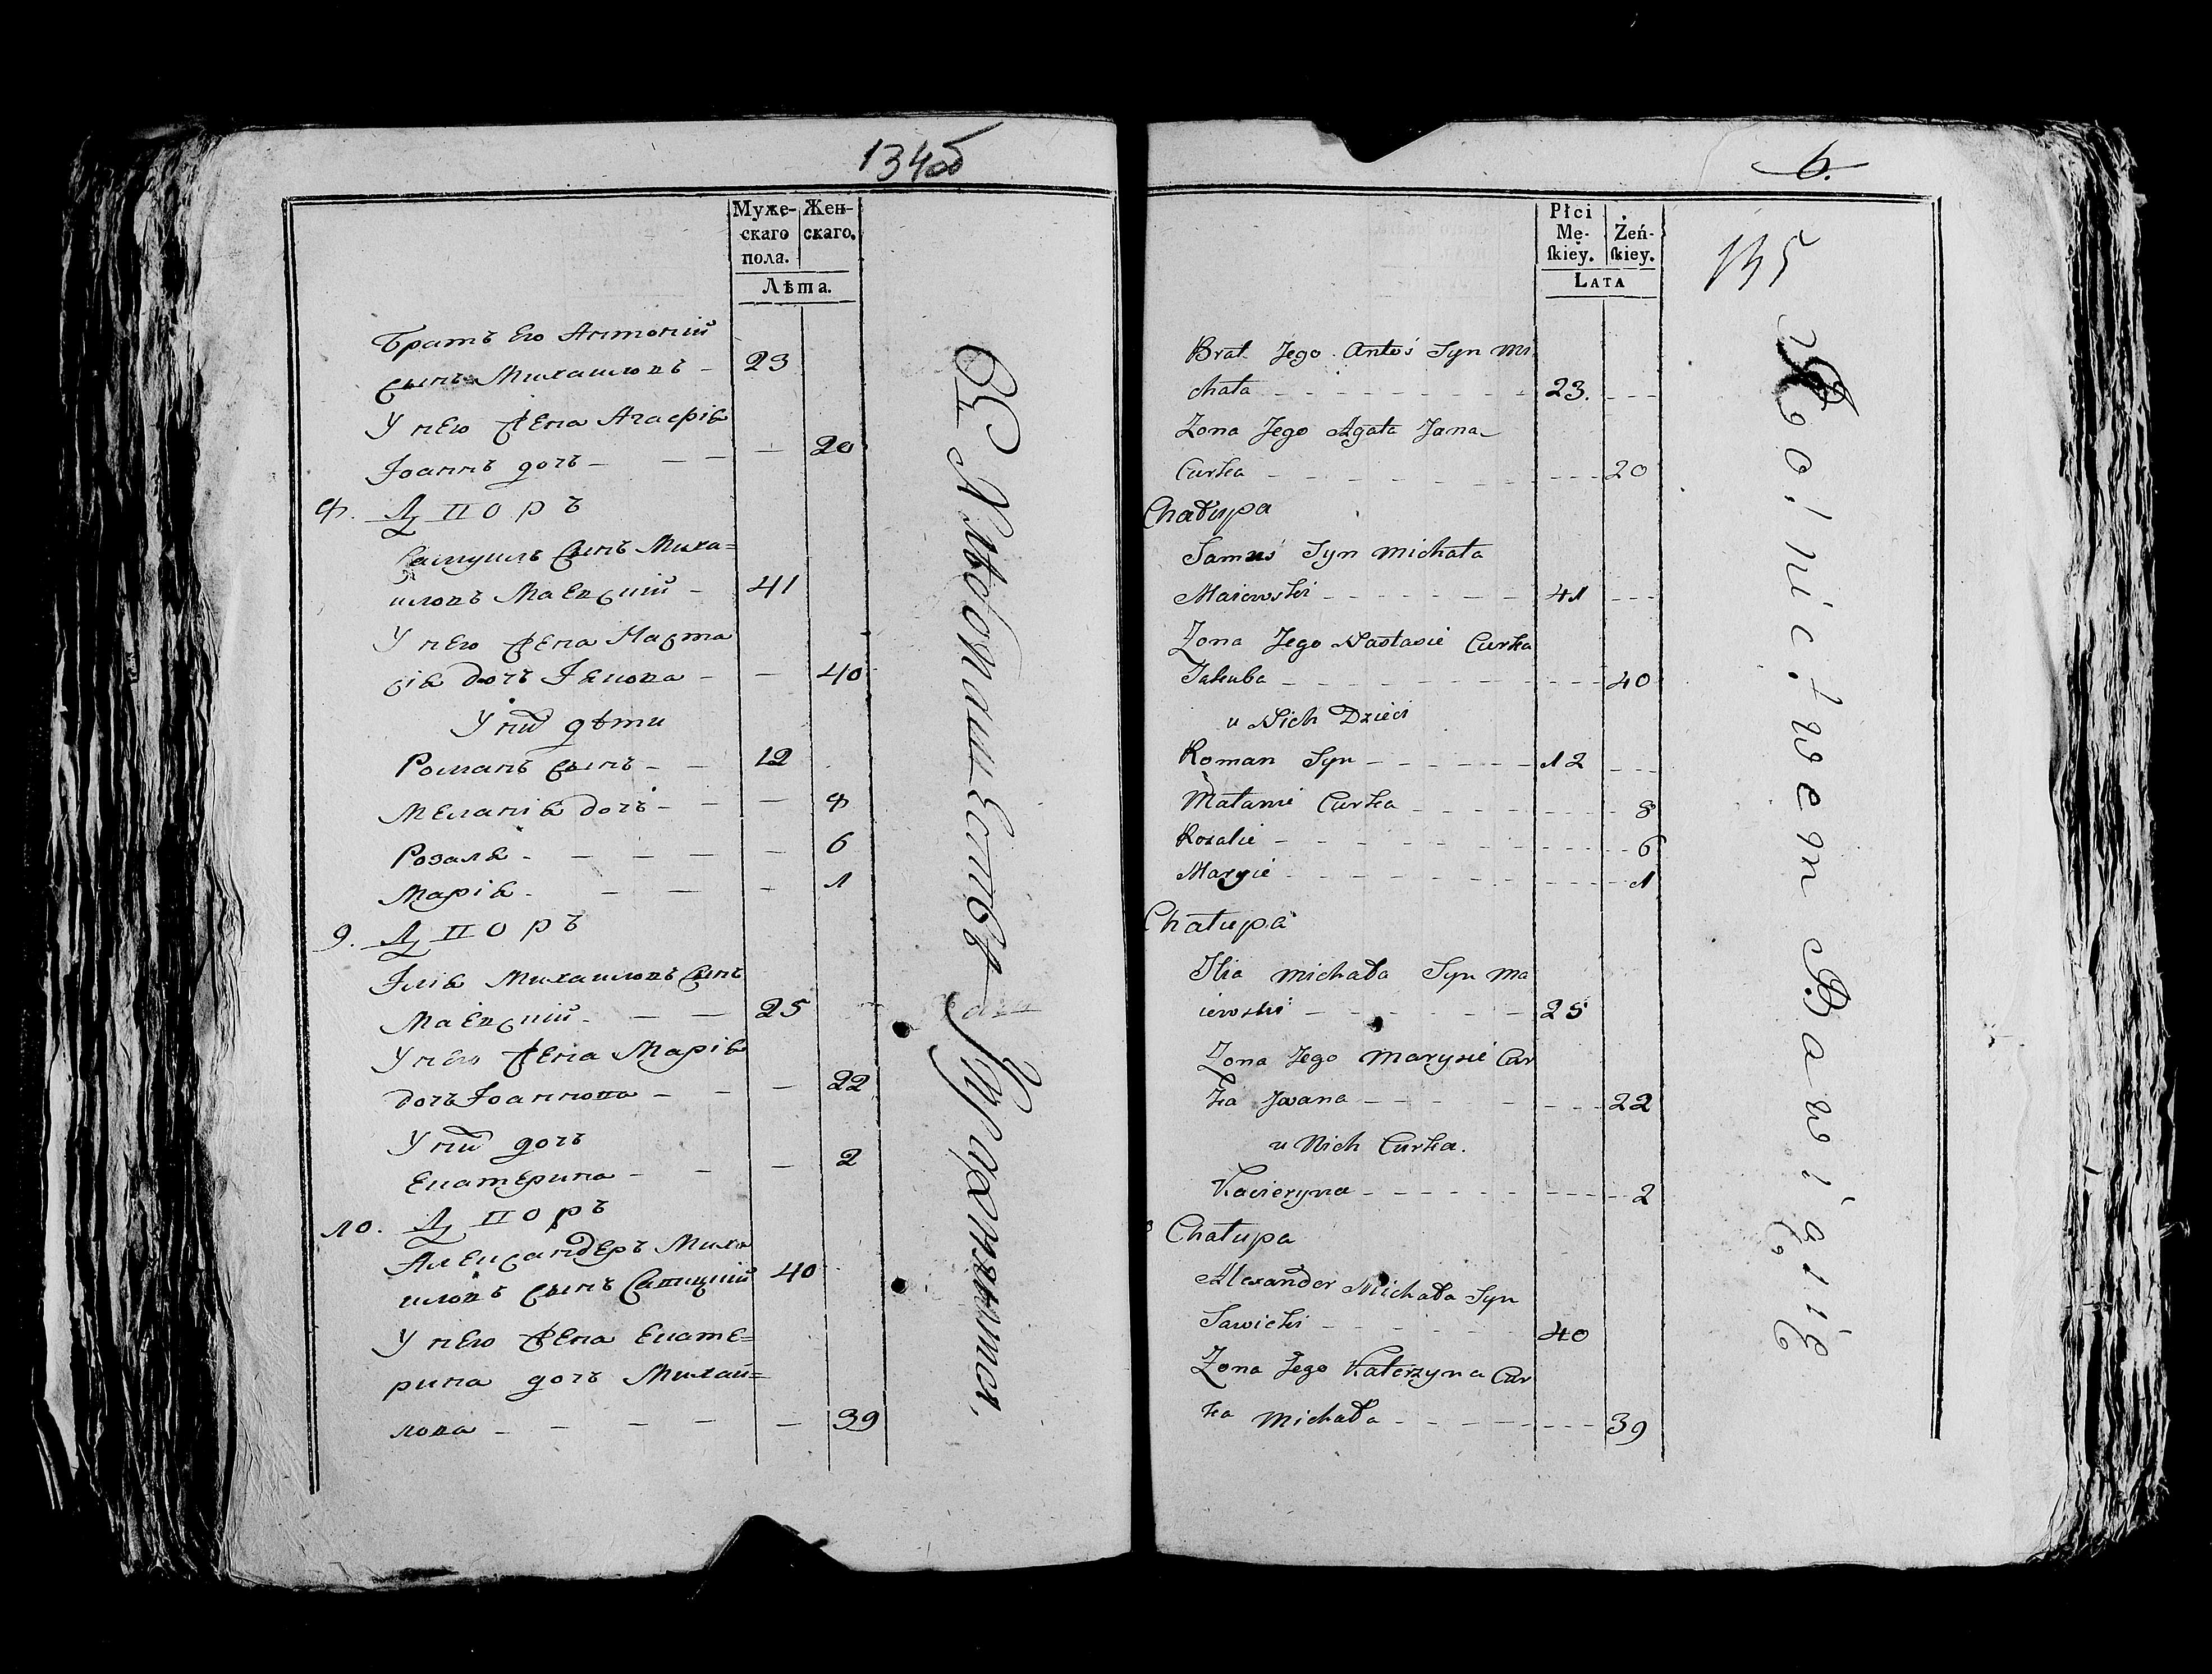 134об
Муже- Жен-
скаго скаго.
пола.
Лѣта.
Братъ Его Антоній
сынъ Михаиловъ - 23
У него Жена Агафія
Іоаннъ дочь - - - - 20
8. Дворъ
Самуилъ сынъ Миха=
иловъ Маевскій - 41
У него Жена Настa
сія дочь Якова - - 40
У нихъ дѣти
Романъ сынъ - - 12
Меланія дочь - - - 8
Розаля - - - - - 6
Марія - - - - 1
9. Дворъ
Илія Михаиловъ сынъ
Маевскій - - - 25
У него Жена Марія
дочь Іоаннова - - - 22
У нихъ дочь
Екатерина - - - 2
10. Дворъ
Александеръ Миха
иловъ сынъ Савицкій 40
У него Жена Екате=
рина дочь Михай=
лова - - - - - 39
Хлѣбопашествѣ
6.
135
Płci Żeń-
Mę- skiey.
skiey.
LATA
Brat Jego Antoś Syn Mi
chała - - - 23. - - -
Zona Jego Agata Jana
Curka - - - 20
Chałupa
Samuś Syn Michała
Maiewski - - - 41 - - -
Zona Jego Nastasie Curka
Jakuba - - - 40
u Nich Dzieci
Roman Syn - - - 12 - - -
Małanie Curka - - - 8
Rozalie - - - 6
Maryie - - - 1
Chałupa
Ilia Michała Syn Ma
iewski - - - 25
Zona Jego Marysie Cur
ka Jwana - - - 22
u Nich Curka.
Kacieryna - - - 2
Chałupa
Alexander Michała Syn
Sawicki - - - 40
Zona Jego Katerzyna Cur
ka Michała - - - 39
Rolnictwem Bawi się